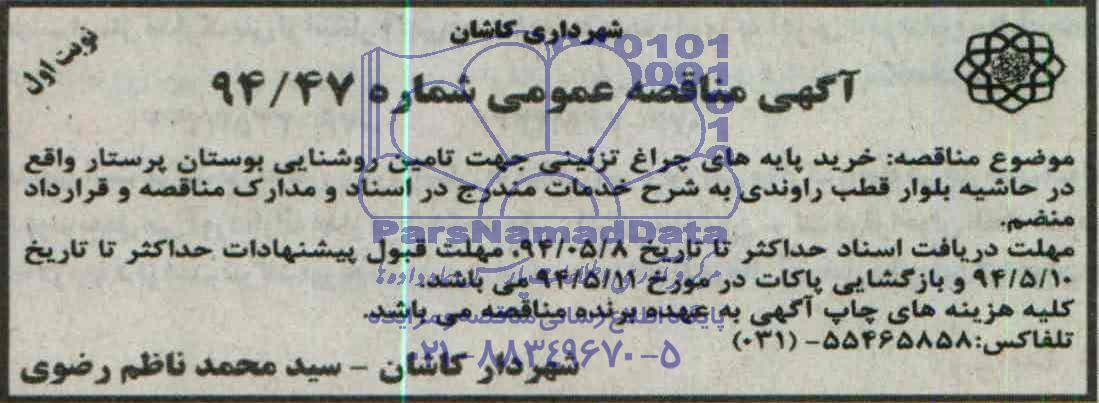 شهرداری کاشان
نوبت اول
آگهی مناقصه عمومی شماره ۹۴/۴۷
موضوع مناقصه: خرید پایه های چراغ تزئینی جهت تامین روشنایی بوستان پرستار واقع
در حاشیه بلوار قطب راوندی به شرح خدمات مندرج در اسناد و مدارک مناقصه و قرارداد
منضم.
ParsNamadData
مهلت دریافت اسناد حداکثر تا تاریخ ۹۴/۰۵/۸، مهلت قبول پیشنهادات حداکثر تا تاریخ
۹۴/۵/۱۰ و بازگشایی پاکات در مورخ ۹۴/۵/۱۱ می باشد.
کلیه هزینه های چاپ آگهی به عهده برنده مناقصه می باشد.
تلفاکس: ۵۵۴۶۵۸۵۸- (۰۳۱)
۰۲۱-۸۸۳۴۹۶۷۰-۵
شهردار کاشان - سید محمد ناظم رضوی